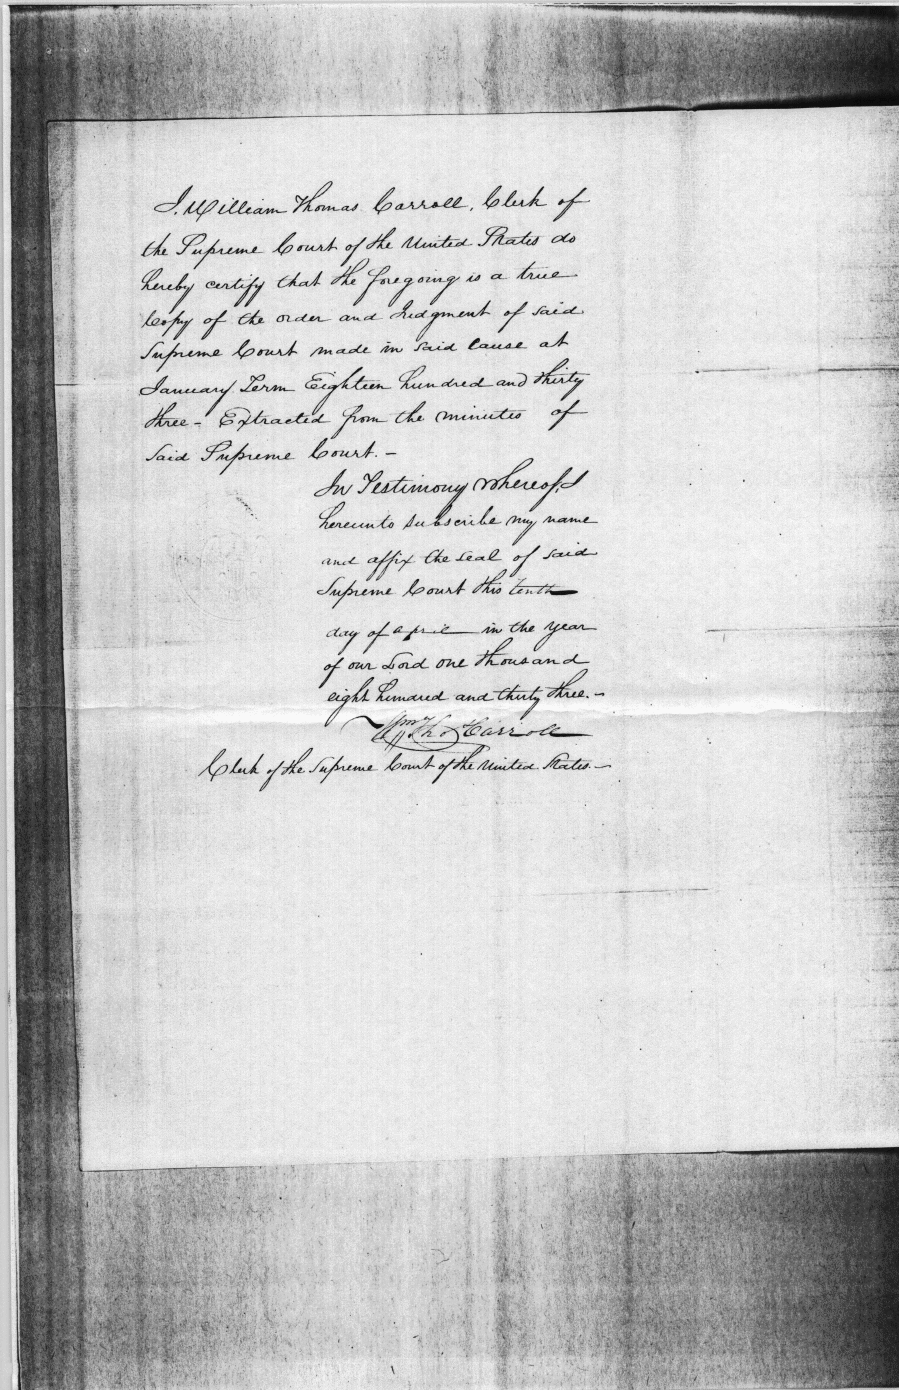 I, William Thomas Carroll, Clerk of
the Supreme Court of the United States do
hereby certify that the foregoing is a true
Copy of the order and Judgment of said
Supreme Court made in said cause at
January Term Eighteen hundred and thirty
three - Extracted from the minutes of
said Supreme Court. -
In Testimony whereof, I
hereunto subscribe my name
and affix the seal of said
Supreme Court this tenth
day of april in the year
of our Lord one thousand
eight hundred and thirty three. -
Wm Tho Carroll
Clerk of the Supreme Court of the United States. -